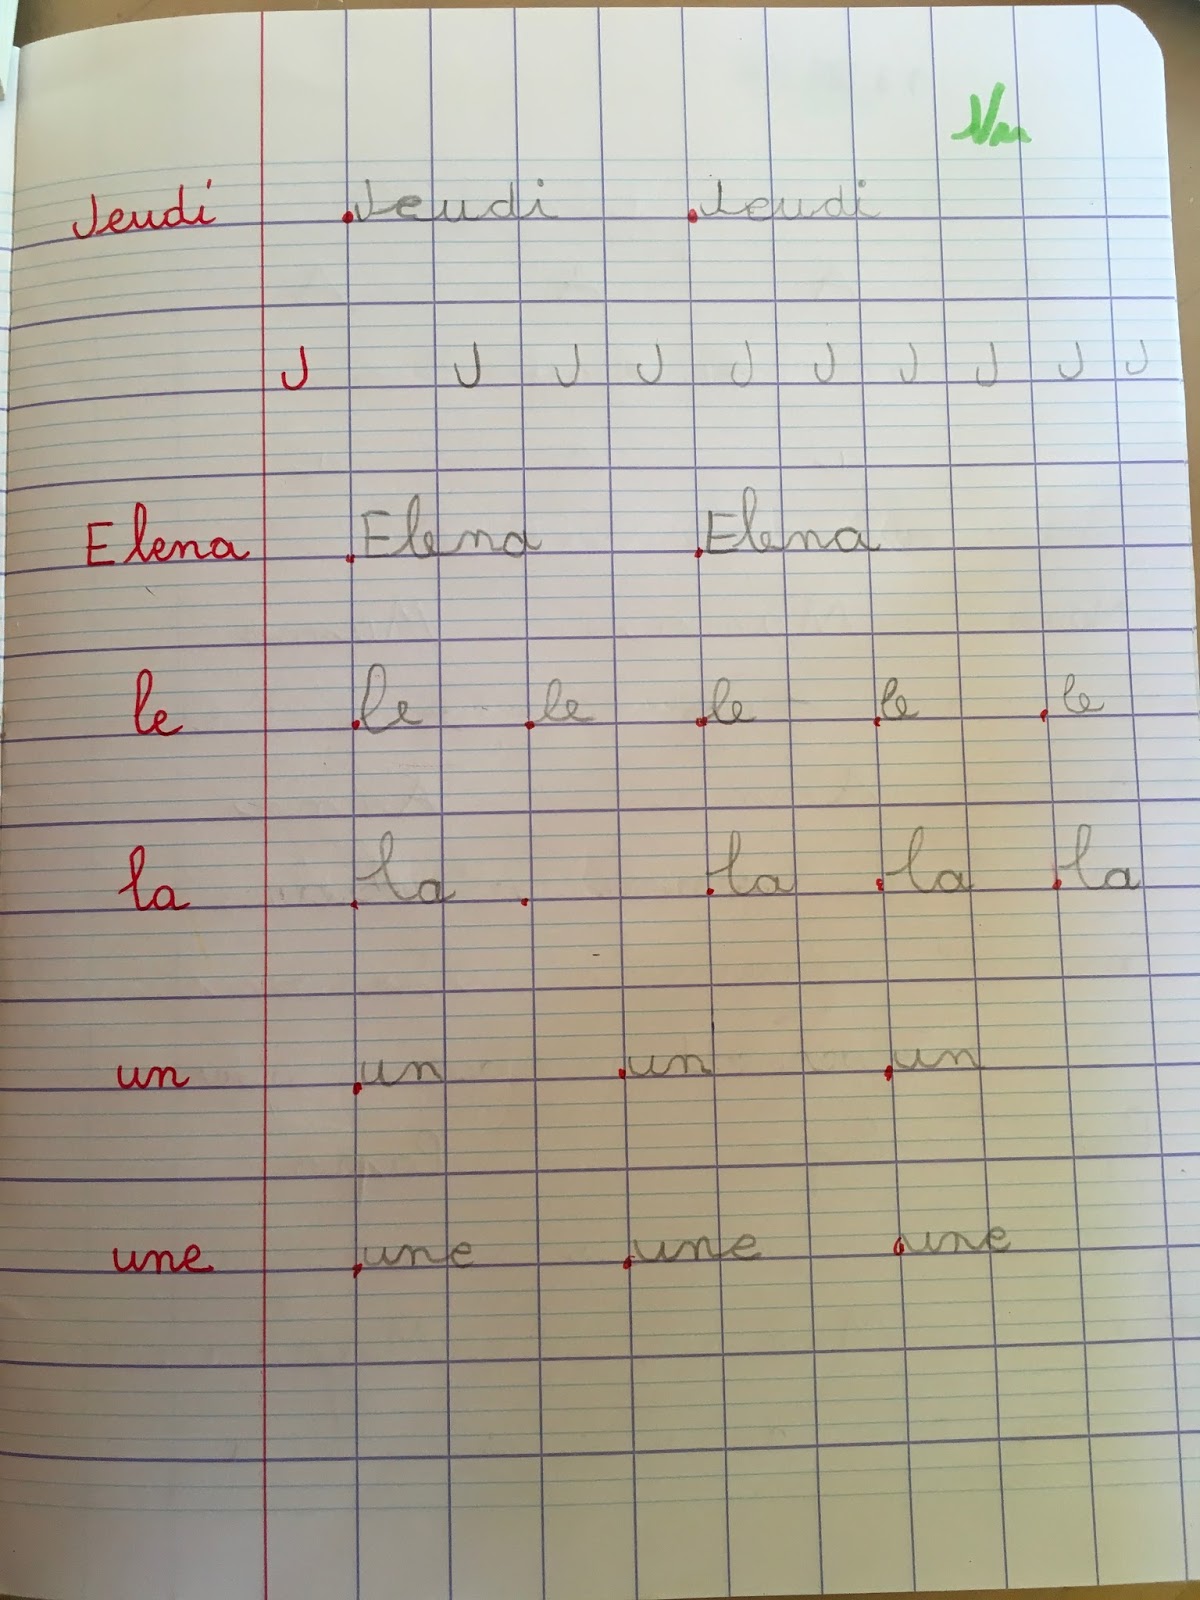 Vu
Jeudi Jeudi Jeudi
J J J J J J J J J J
Elena Elena Elena
le le le le le le
la la la la la
un un un un
une une une une